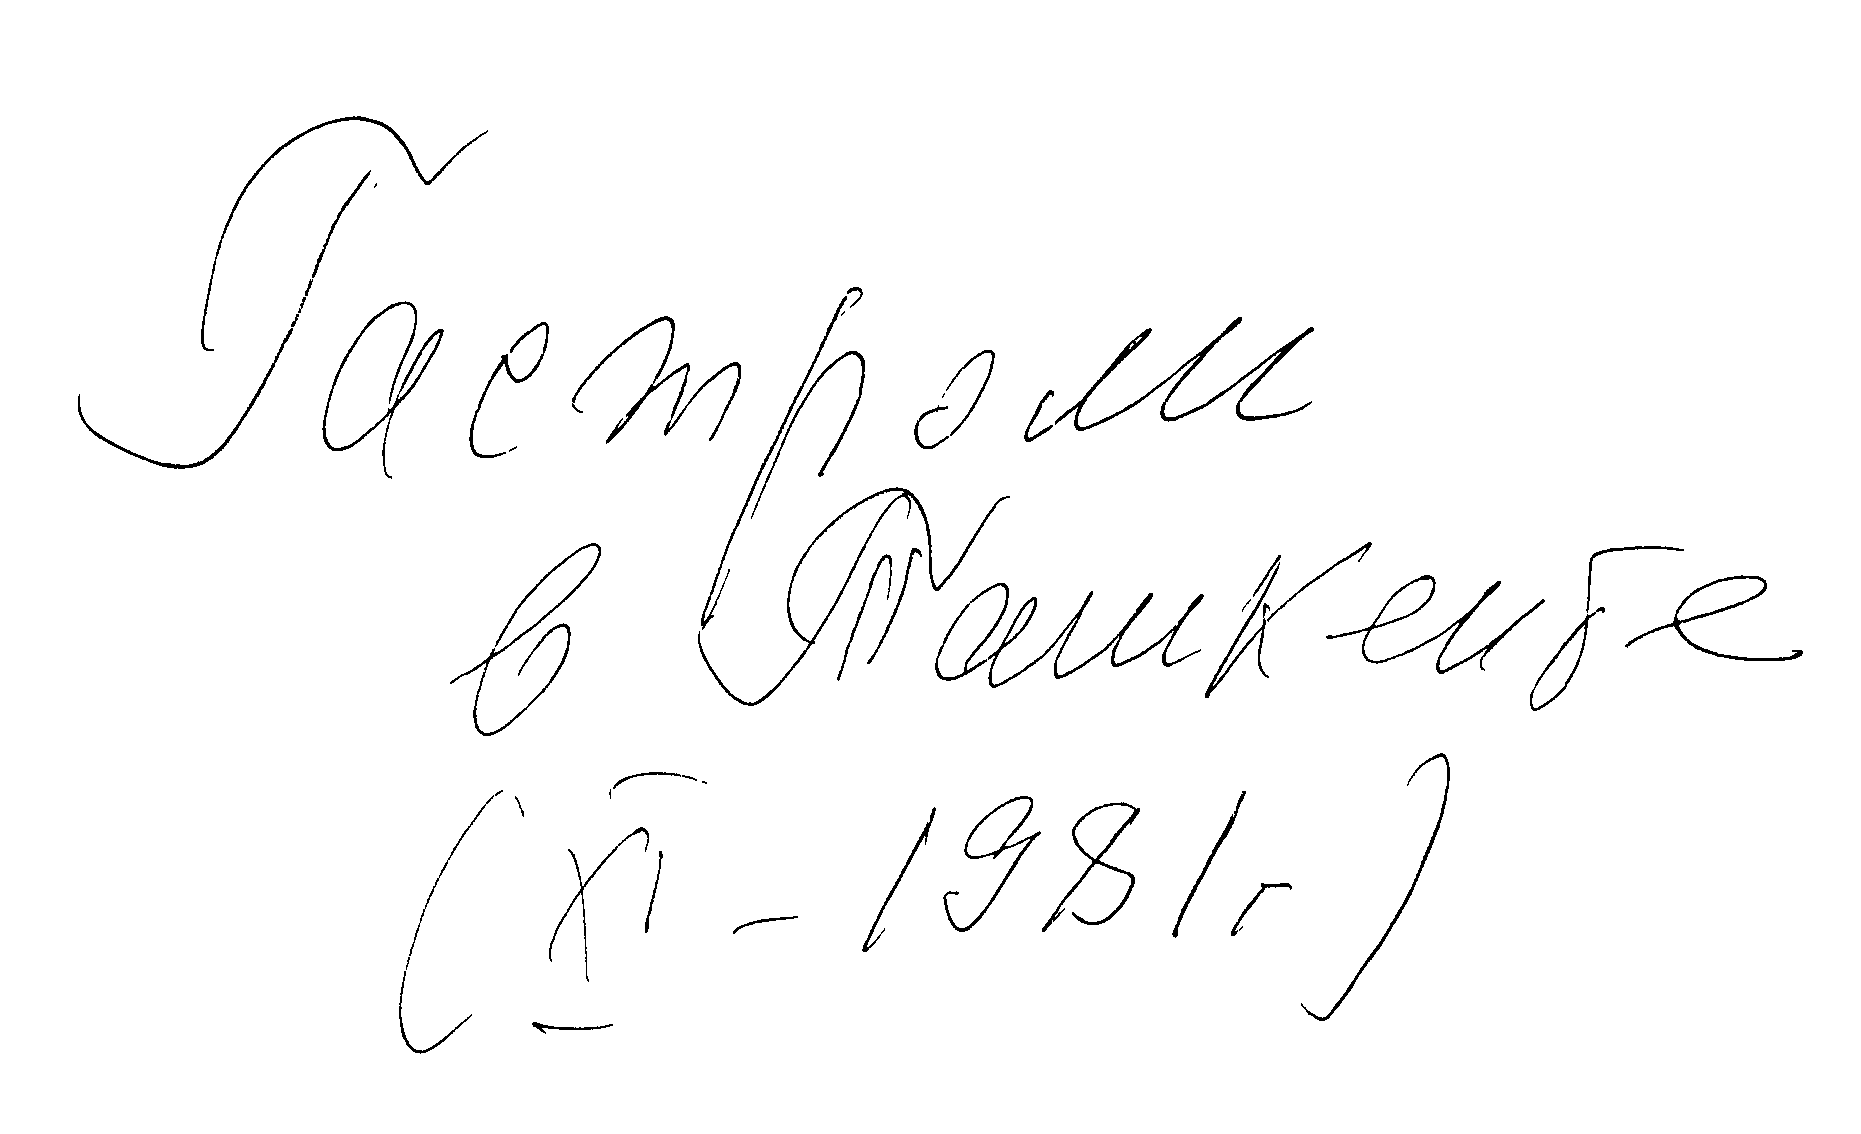 Гастроли
в Ташкенте
(XI - 1981г)